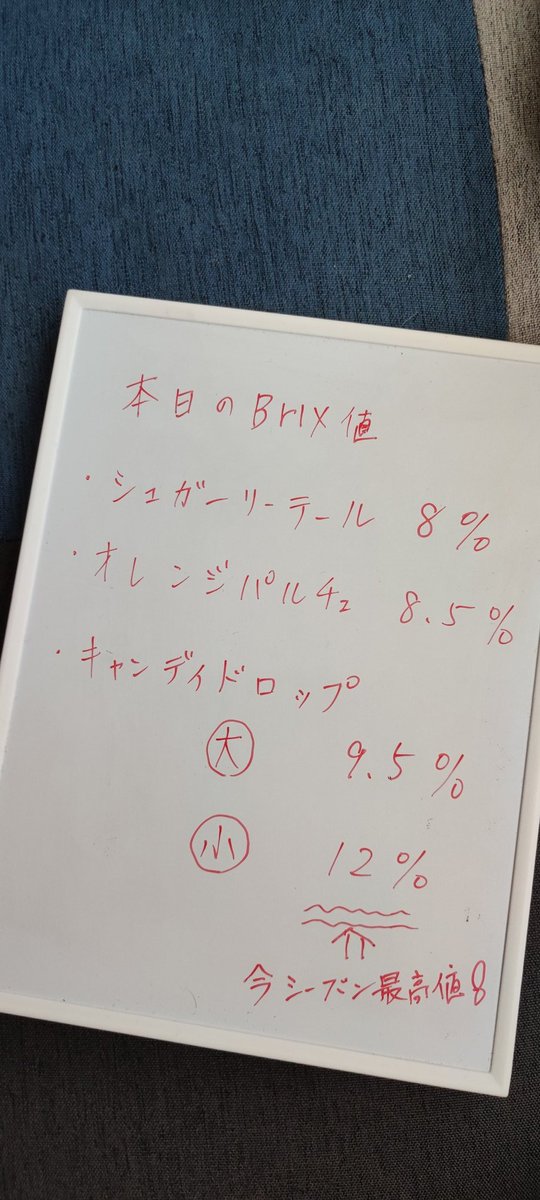 本日のBrix値
・シュガーリーテール 8%
・オレンジパルチェ 8.5%
・キャンディドロップ
大 9.5%
小 12%
今シーズン最高値